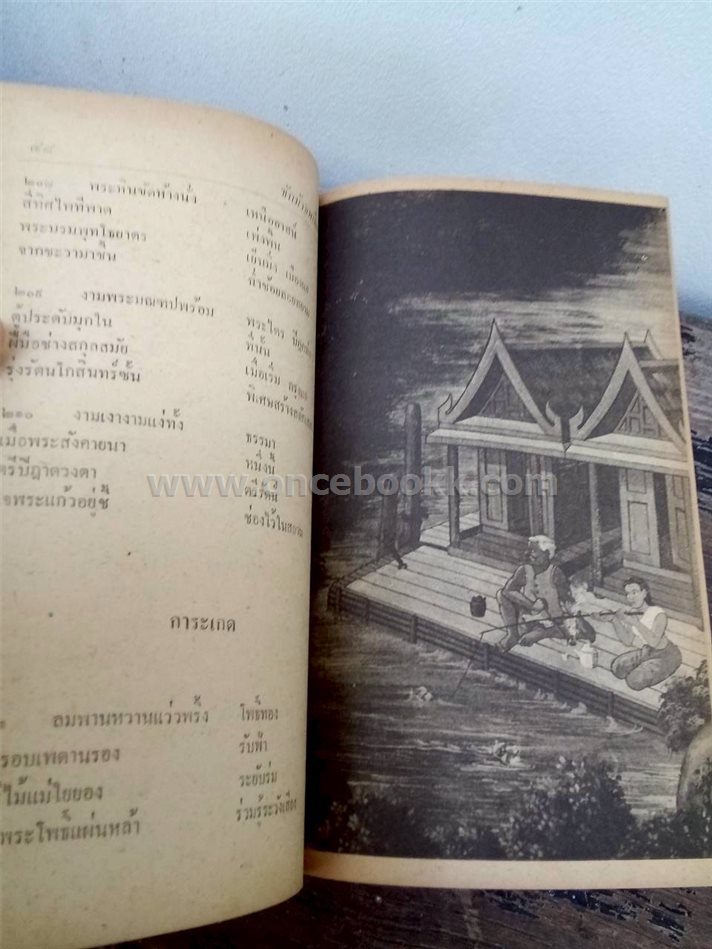 ๙๘
๒๐๘ พระหินขัดห้างน้ำ
สี่ทิศไพทีพาด เหนืออาสน์
พระบรมพุทธิยาตร เพ่งพิน
จากชะวามาชิ้น
๒๐๙ งามพระมณฑปพร้อม พระไตร
ตู้ประดับมุกใน ที่นั้น
ฝีมือช่างสกุลสมัย เมื่อเริ่ม
รุ่งรัตนโกสินทร์ซั้น
๒๑๐ งามเงางามแง่ทั้ง ธรรมา
เมื่อพระสังคายนา หนึ่งนี้
ตรีปีฎาดวงตา ตรีรัตน
จพระแก้วอยู่ชี้ ช่องไว้ในสยาม
www.oncebookk.com
การะเกด
ลมพานหวานแว่วพริ้ง โพธิ์ทอง
รอบเพดานรอง รับฟ้า
ไม้แม่ใยยอง ระยับร่ม
พระโพธิ์แผ่นหล้า ร่วมรู้ระวังเสียง